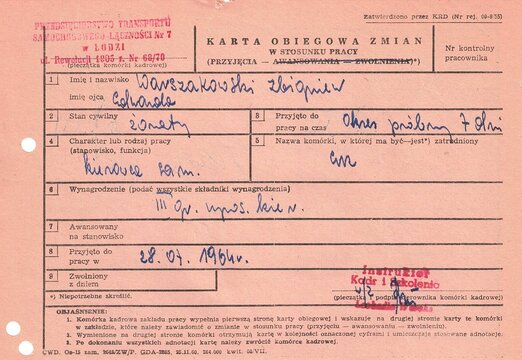 Zatwierdzono przez KRD (Nr rej. 09-8/55)
PRZEDSIĘBIORSTWO TRANSPORTU
SAMOCHODOWEGO ŁĄCZNOŚCI Nr 7
w ŁODZI
ul. Rewolucji 1905 r. Nr 68/70
(pieczątka komórki kadrowej)
KARTA OBIEGOWA ZMIAN
W STOSUNKU PRACY
(PRZYJĘCIA — AWANSOWANIA — ZWOLNIENIA)*)
Nr kontrolny
pracownika
1 Imię i nazwisko Warszakowski Zbigniew
imię ojca Edwarda
2 Stan cywilny żonaty
3 Przyjęto do
pracy na czas okres próbny 7 dni
4 Charakter lub rodzaj pracy
(stanowisko, funkcja)
kierowca sam.
5 Nazwa komórki, w której ma być—jest*) zatrudniony
6 Wynagrodzenie (podać wszystkie składniki wynagrodzenia)
III gr. upos. kier.
7 Awansowany
na stanowisko
8 Przyjęto do
pracy w 28.07.1964r.
9 Zwolniony
z dniem
*) Niepotrzebne skreślić.
Instruktor
Kadr i Szkolenia
(pieczątka i podpis kierownika komórki kadrowej)
OBJAŚNIENIE:
1. Komórka kadrowa zakładu pracy wypełnia pierwszą stronę karty obiegowej i wskazuje na drugiej stronie karty te komórki
w zakładzie, które należy zawiadomić o zmianie w stosunku pracy (przyjęciu — awansowaniu — zwolnieniu).
2. Wymienione na drugiej stronie komórki otrzymują kartę w kolejności oznaczonej cyframi i umieszczają stosowne adnotacje.
3. Po dokonaniu wszystkich adnotacji kartę należy zwrócić komórce kadrowej.